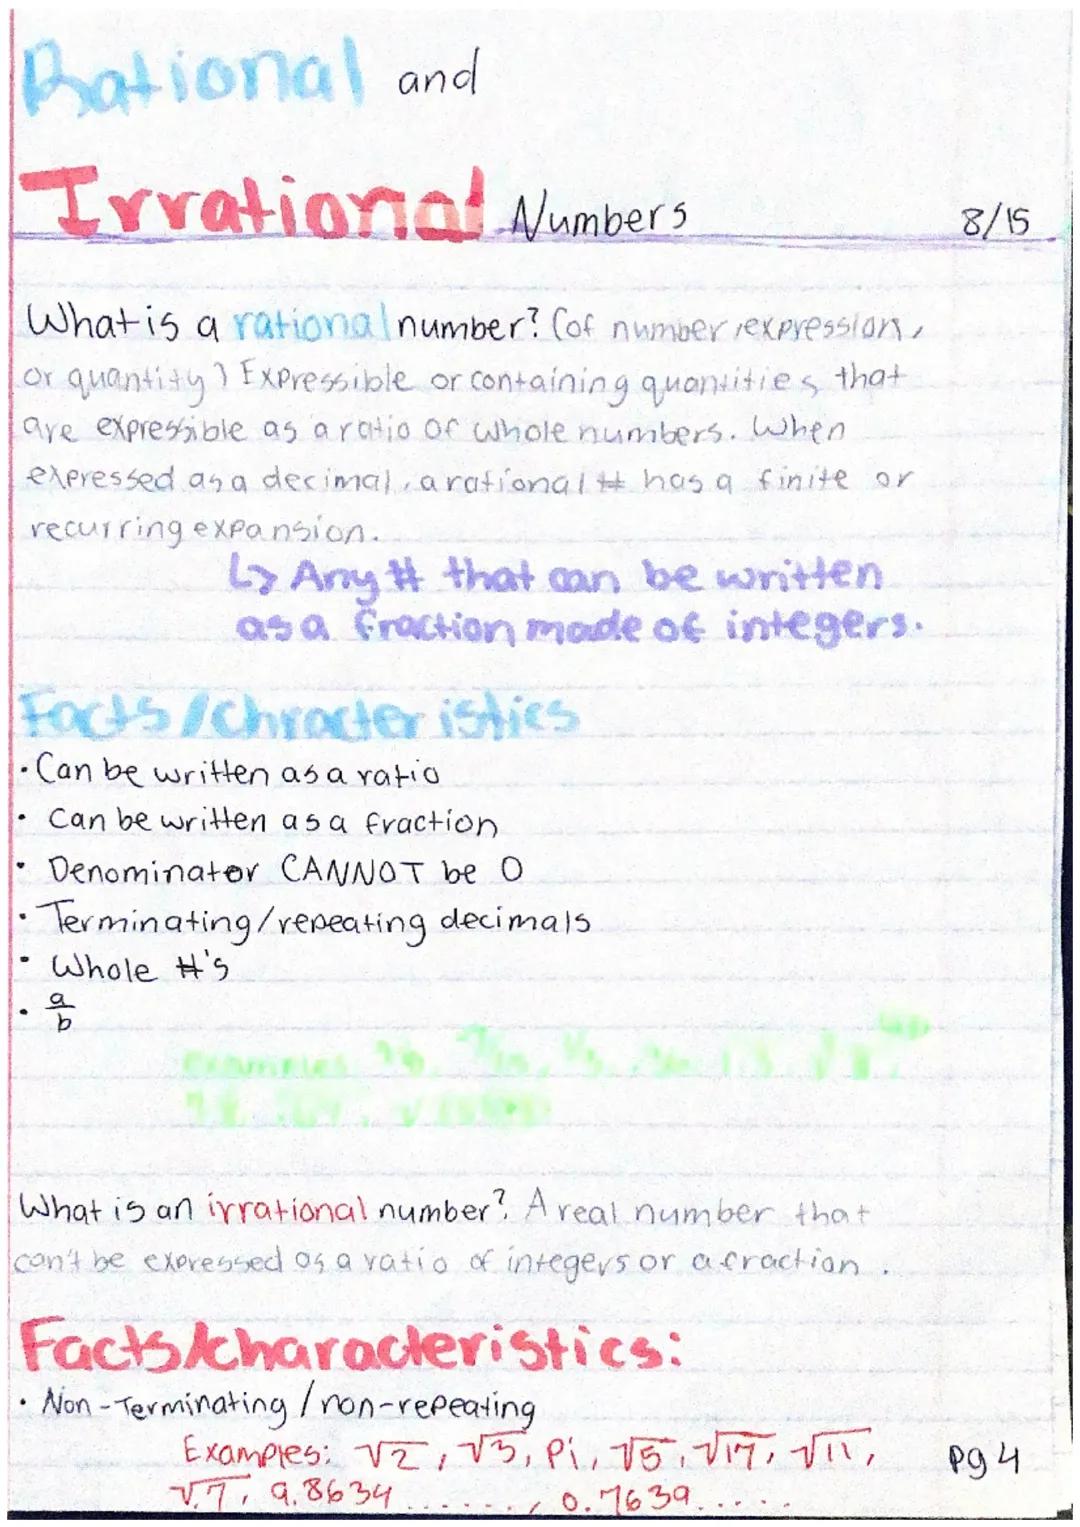 Rational and
Irrational Numbers 8/15
What is a rational number? (of number, expression,
or quantity) Expressible or containing quantities that
are expressible as a ratio of whole numbers. When
expressed as a decimal, a rational # has a finite or
recurring expansion.
↳ Any # that can be written
as a fraction made of integers.
Facts/Chracteristics
• Can be written as a ratio
• Can be written as a fraction
• Denominator CANNOT be 0
• Terminating/repeating decimals
• Whole #'s
• a/b
examples
What is an irrational number? A real number that
can't be expressed as a ratio of integers or a fraction.
Facts/characteristics:
• Non-Terminating/non-repeating
Examples: √2, √3, Pi, √5, √17, √11, pg 4
√.7, 9.8634......, 0.7639.....